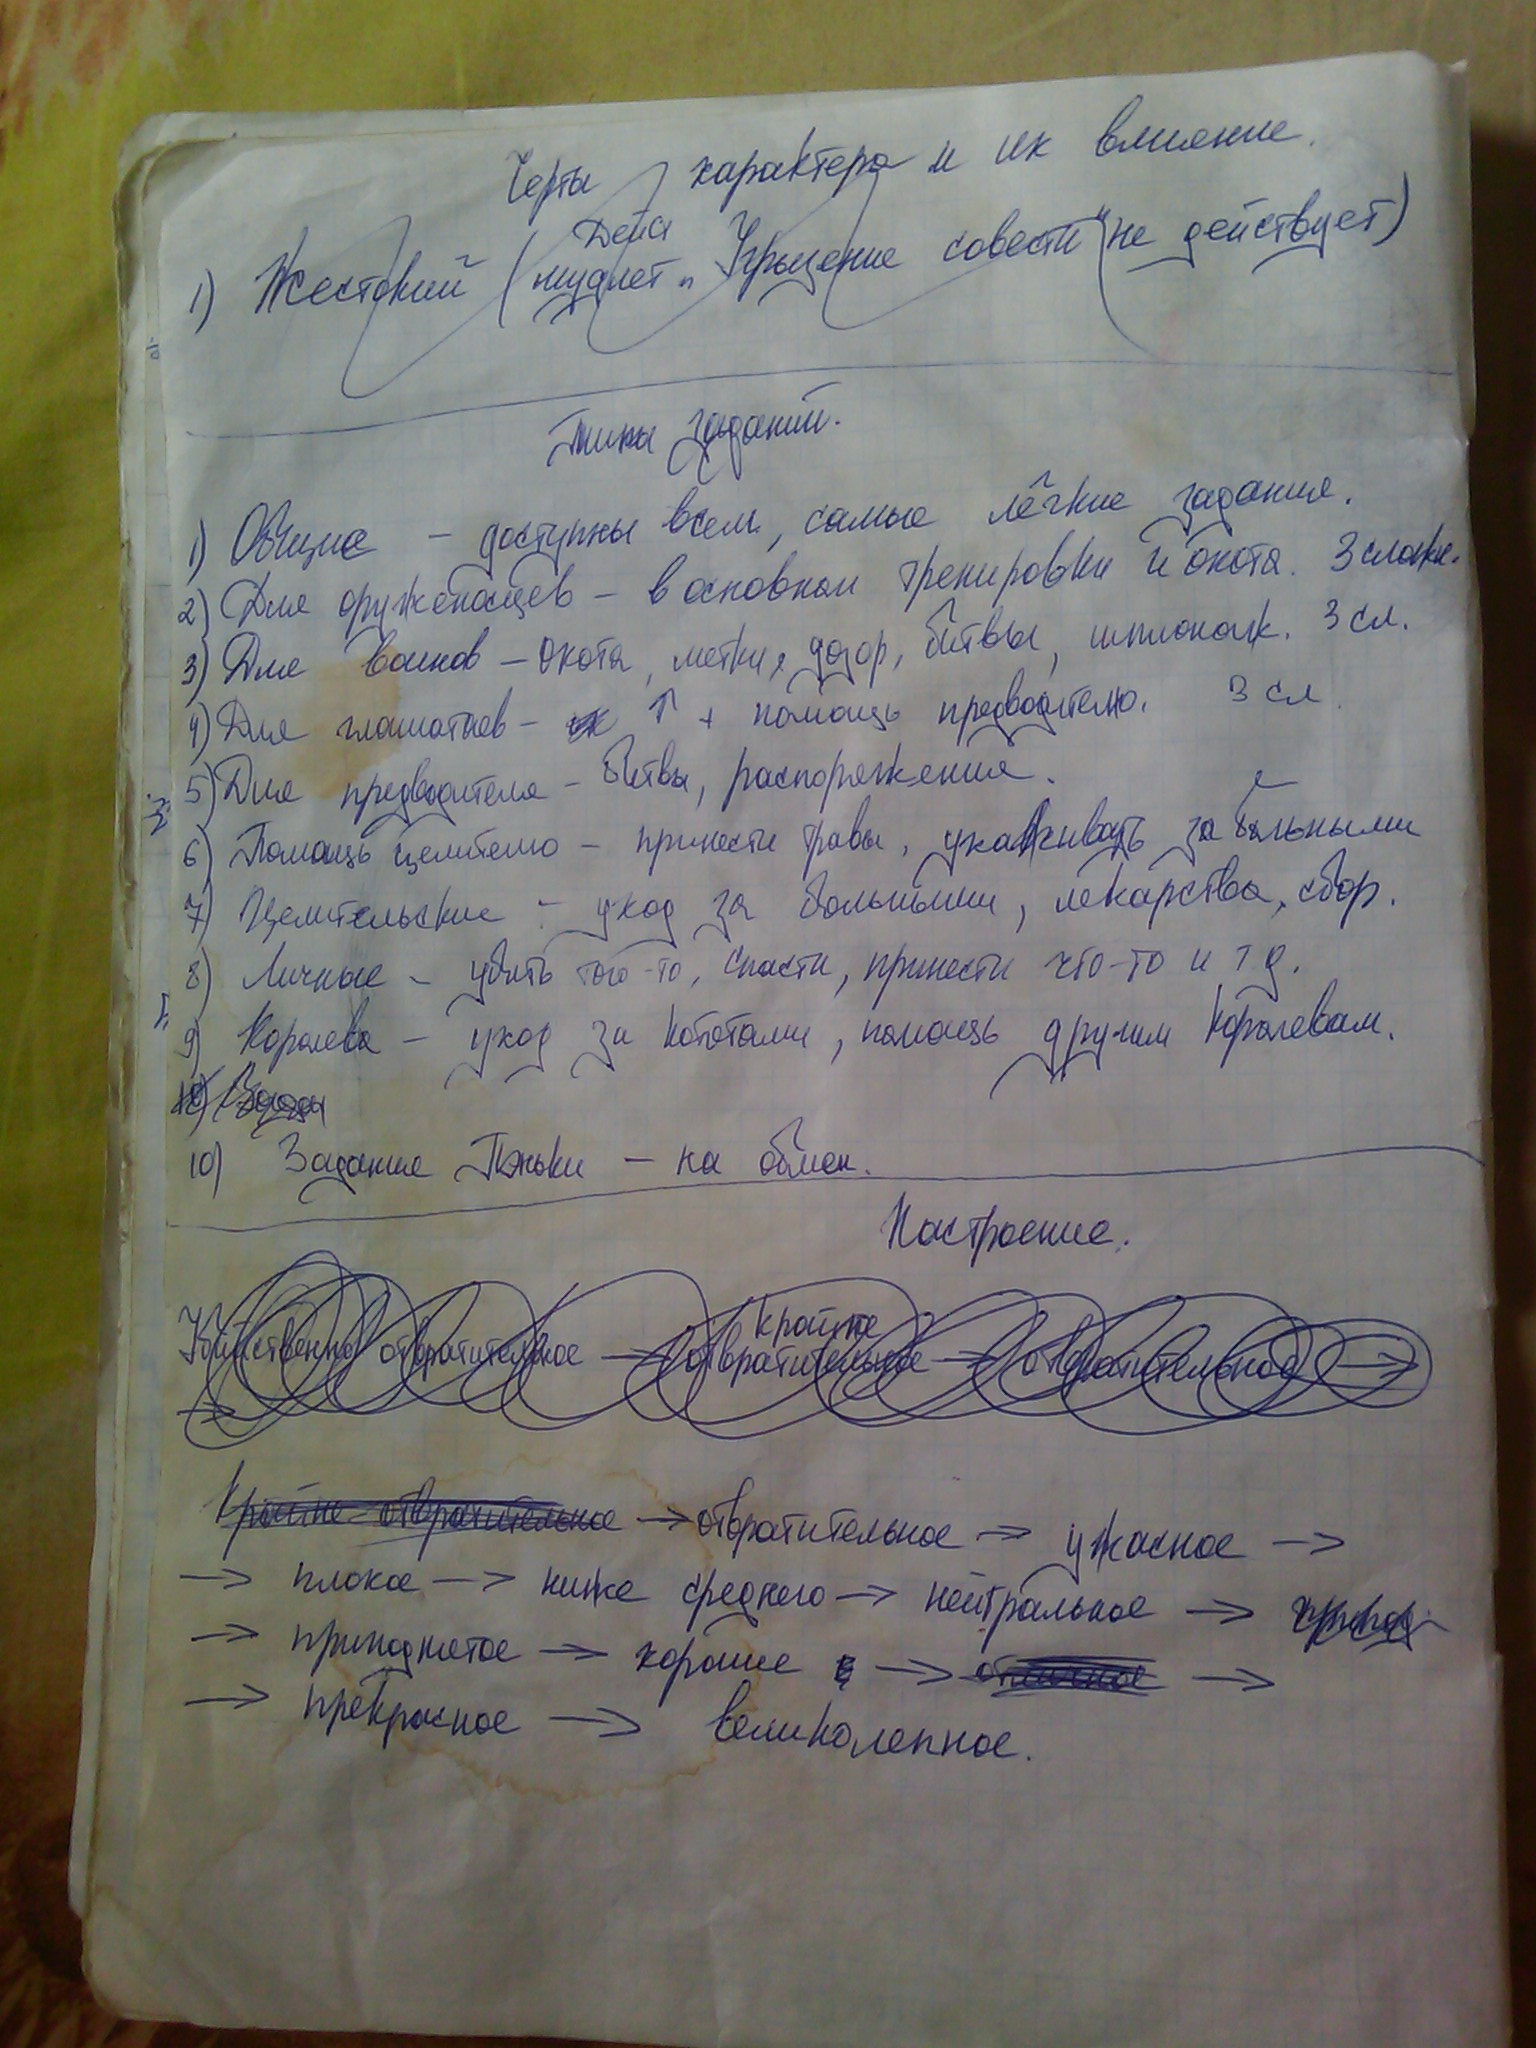 Черты характера и их влияние.
Дейл
1) Жестокий ( „Угрызение совести" не действует)
Типы заданий.
1) Общие – доступны всем, самые лёгкие задания.
2) Для оруженосцев – в основном тренировки и охота. 3 сложн.
3) Для воинов – охота, метки, дозор, битвы, шпионаж. 3 сл.
4) Для глашатаев – ↑ + помощь предводителю. 3 сл
5) Для предводителя – битвы, распоряжения.
6) Помощь целителю – принести травы, ухаживать за больными
7) Целительские – уход за больными, лекарства, сбор.
8) Личные – убить того-то, спасти, принести что-то и т д.
9) Королева – уход за котятами, помощь другим королевам.
10)
10) Задания Пэньки – на обмен.
Настроение.
крайне
Убийственно отвратительное → отвратительное → отвратительное →
→
Крайне отвратительное → отвратительное → ужасное →
→ плохое → ниже среднего → нейтральное →
→ приподнятое → хорошее → отличное →
→ прекрасное → великолепное.